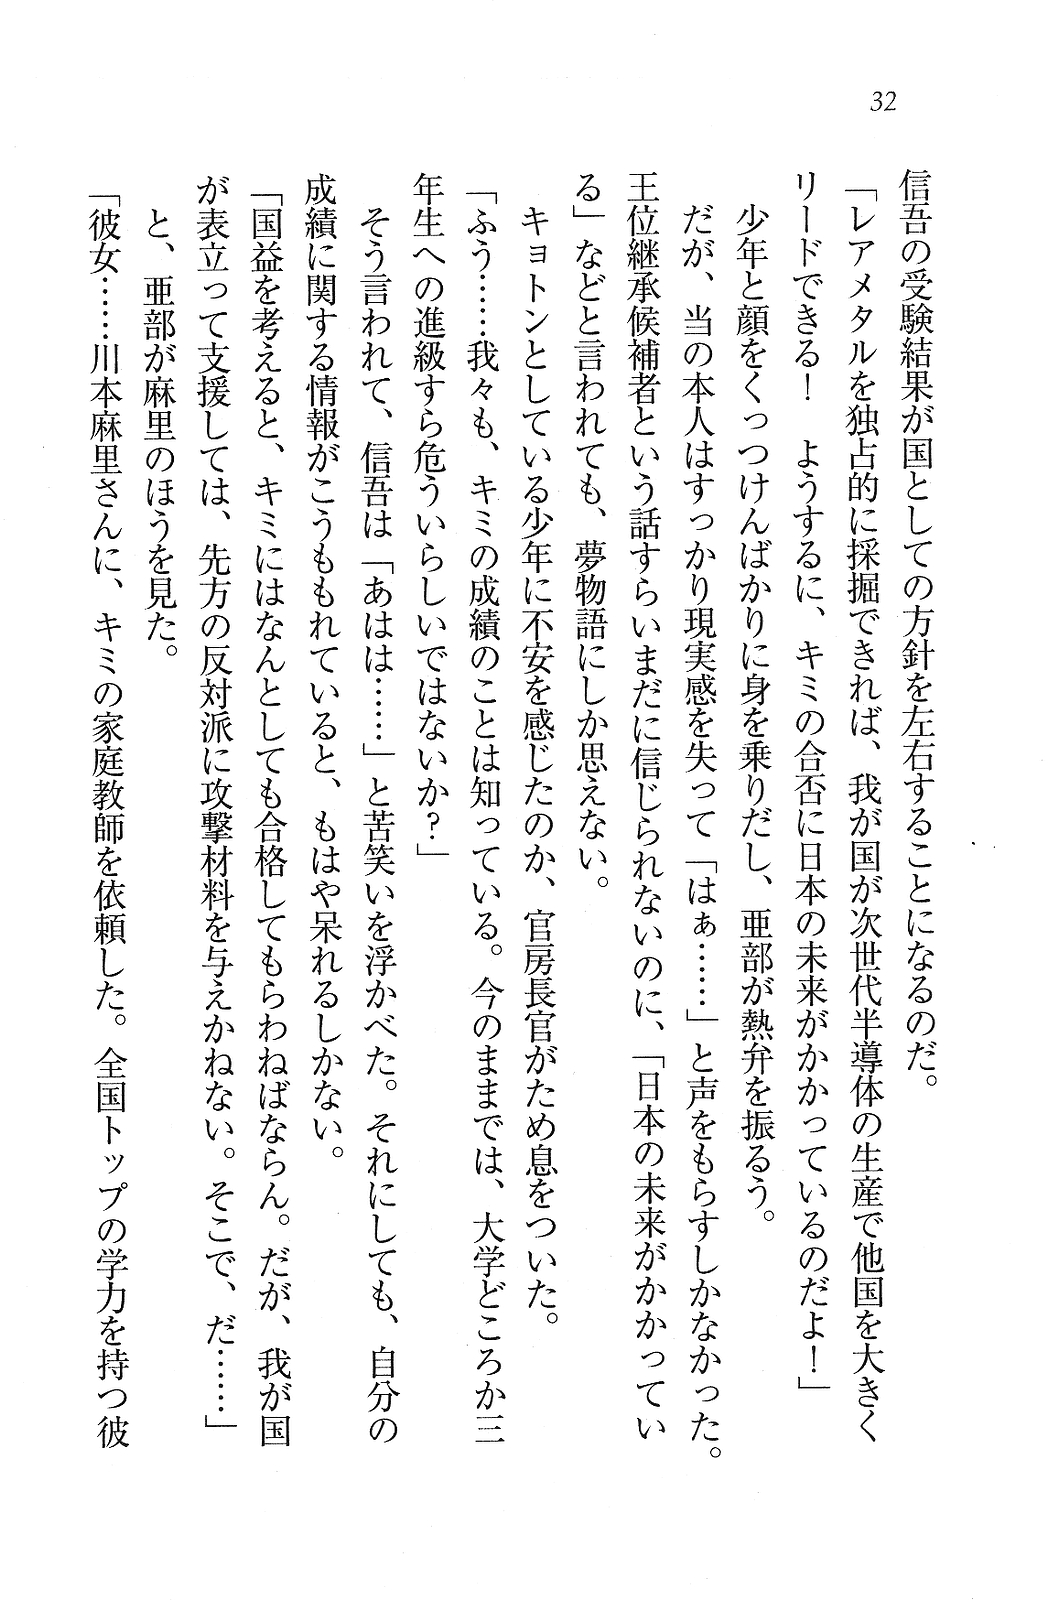 32
信吾の受験結果が国としての方針を左右することになるのだ。
「レアメタルを独占的に採掘できれば、我が国が次世代半導体の生産で他国を大きく
リードできる！　ようするに、キミの合否に日本の未来がかかっているのだよ！」
　少年と顔をくっつけんばかりに身を乗りだし、亜部が熱弁を振るう。
　だが、当の本人はすっかり現実感を失って「はぁ……」と声をもらすしかなかった。
王位継承候補者という話すらいまだに信じられないのに、「日本の未来がかかってい
る」などと言われても、夢物語にしか思えない。
　キョトンとしている少年に不安を感じたのか、官房長官がため息をついた。
「ふう……我々も、キミの成績のことは知っている。今のままでは、大学どころか三
年生への進級すら危ういらしいではないか？」
　そう言われて、信吾は「あはは……」と苦笑いを浮かべた。それにしても、自分の
成績に関する情報がこうももれていると、もはや呆れるしかない。
「国益を考えると、キミにはなんとしても合格してもらわねばならん。だが、我が国
が表立って支援しては、先方の反対派に攻撃材料を与えかねない。そこで、だ……」
　と、亜部が麻里のほうを見た。
「彼女……川本麻里さんに、キミの家庭教師を依頼した。全国トップの学力を持つ彼